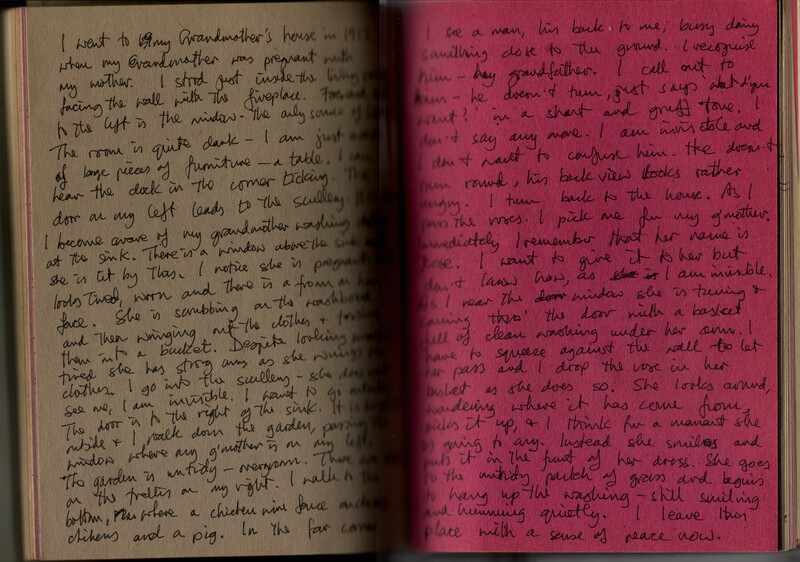 I went to my Grandmother's house in 191
when my Grandmother was pregnant with
my mother. I stood just inside the living
facing the wall with the fireplace.
to the left is the window - the only source of
The room is quite dark - I am just
of large pieces of furniture - a table. I can
hear the clock in the corner ticking. The
door on my left leads to the scullery.
I become aware of my grandmother washing
at the sink. There is a window above the sink
she is lit by this. I notice she is pregnant,
looks tired, worn and there is a frown on
face. She is scrubbing on the washboard
and then wringing out the clothes &
them into a bucket. Despite looking
tired she has strong arms as she wrings
clothes. I go into the scullery - she does
see me, I am invisible. I want to go
The door is to the right of the sink. It is
outside & I walk down the garden, passing
window where my g'mother is on my left.
The garden is untidy - overgrown. There are
on the trellis on my right. I walk to the
bottom, where a chicken wire fence
chickens and a pig. In the far corner
I see a man, his back to me, busy doing
something close to the ground. I recognise
him - my grandfather. I call out to
him - he doesn't turn, just says 'what d'you
want?' in a short and gruff tone. I
don't say any more. I am invisible and
I don't want to confuse him. He doesn't
turn round, his back view looks rather
angry. I turn back to the house. As I
pass the roses. I pick one for my g'mother.
Immediately I remember that her name is
Rose. I want to give it to her but
don't know how, as she is I am invisible.
As I near the door window she is turning &
coming thro' the door with a basket
full of clean washing under her arm. I
have to squeeze against the wall to let
her pass and I drop the rose in her
basket as she does so. She looks around,
wondering where it has come from,
picks it up, & I think for a moment she
is going to cry. Instead she smiles and
puts it in the front of her dress. She goes
to the untidy patch of grass and begins
to hang up the washing - still smiling
and humming quietly. I leave this
place with a sense of peace now.